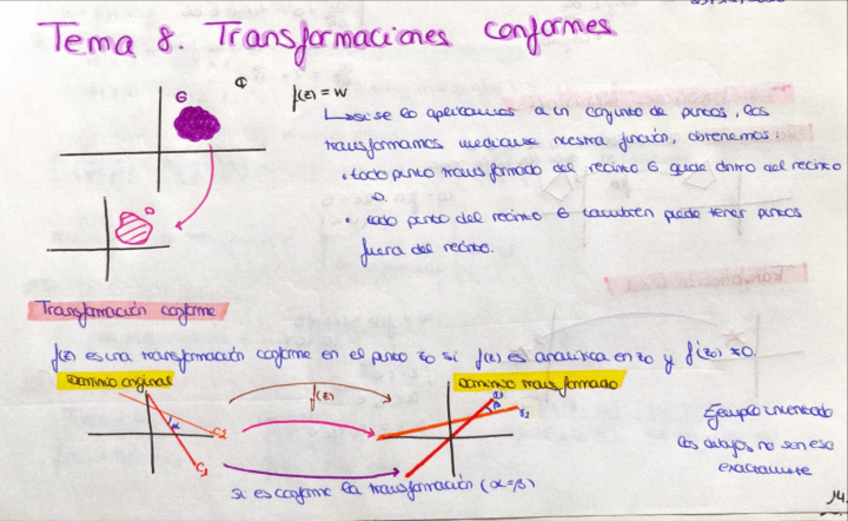 Tema 8. Transformaciones conformes
G ₵ f(z) = w
↳ si se lo aplicamos a un conjunto de puntos, los
transformamos mediante nuestra función, obtenemos:
• todo punto transformado del recinto G quede dntro del recinto
D.
D
• todo punto del recinto G tambien puede tener puntos
fuera del recinto.
Transformación conforme
f(z) es una transformación conforme en el punto z0 si f(z) es analitica en z0 y f'(z0) ≠ 0.
Dominio original
f(z)
Dominio transformado
α
C2
C1
β
S2
Ejemplo inventado
los dibujos no son eso
exactamente
si es conforme la transformación (α=β)
14.